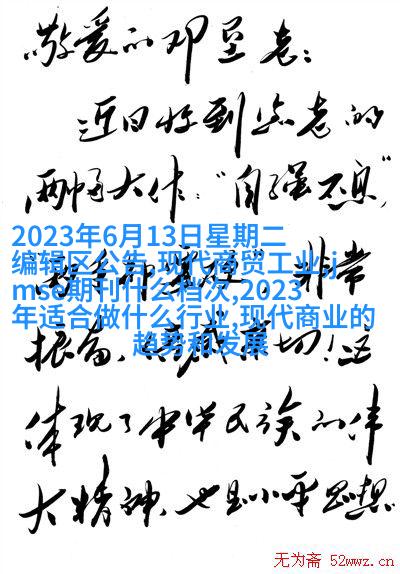 敬爱的邓垦老：
近日收到您老的
两幅大作：“自强不息”，
2023年6月13日星期二
编辑区公告,现代商贸工业,j
mse期刊什么档次,2023
年适合做什么行业,现代商业的
趋势和发展
非常
振奋、感亲切！这
体现了中华民族的伟
大精神，也是小平思想
无为斋 52wwz.cn